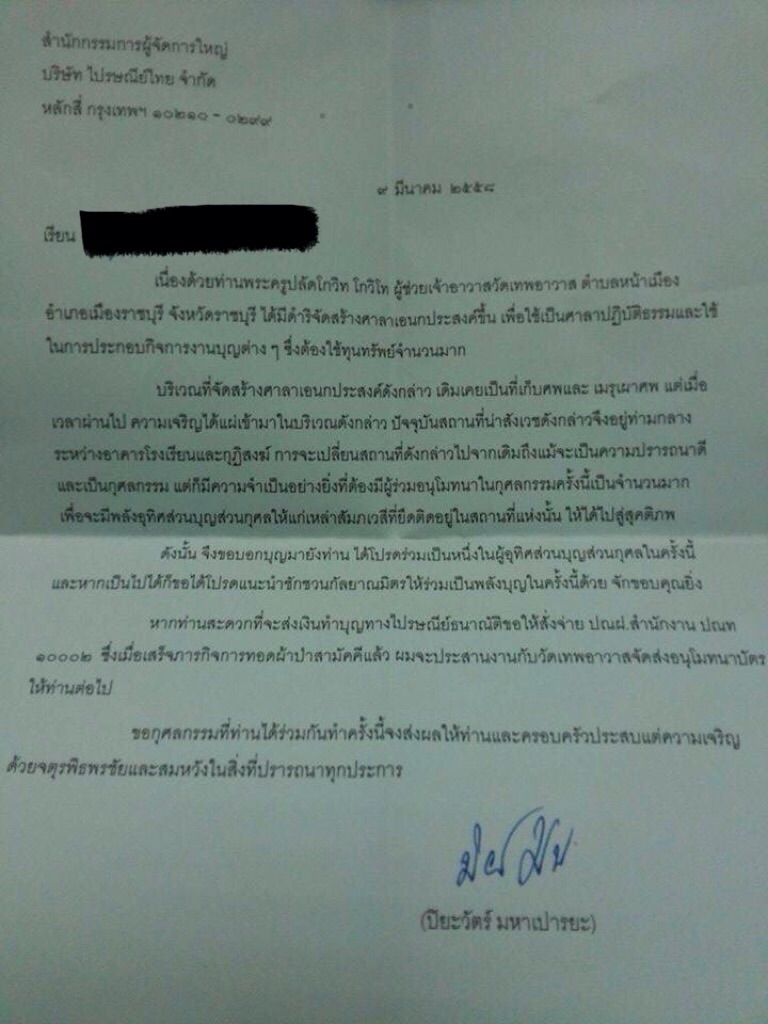 สำนักกรรมการผู้จัดการใหญ่
บริษัท ไปรษณีย์ไทย จำกัด
หลักสี่ กรุงเทพฯ ๑๐๒๑๐ - ๐๒๙๙
๙ มีนาคม ๒๕๕๘
เรียน
เนื่องด้วยท่านพระครูปลัดโกวิท โกวิโท ผู้ช่วยเจ้าอาวาสวัดเทพอาวาส ตำบลหน้าเมือง
อำเภอเมืองราชบุรี จังหวัดราชบุรี ได้มีดำริจัดสร้างศาลาเอนกประสงค์ขึ้น เพื่อใช้เป็นศาลาปฏิบัติธรรมและใช้
ในการประกอบกิจการงานบุญต่าง ๆ ซึ่งต้องใช้ทุนทรัพย์จำนวนมาก
บริเวณที่จัดสร้างศาลาเอนกประสงค์ดังกล่าว เดิมเคยเป็นที่เก็บศพและ เมรุเผาศพ แต่เมื่อ
เวลาผ่านไป ความเจริญได้แผ่เข้ามาในบริเวณดังกล่าว ปัจจุบันสถานที่น่าสังเวชดังกล่าวจึงอยู่ท่ามกลาง
ระหว่างอาคารโรงเรียนและกุฏิสงฆ์ การจะเปลี่ยนสถานที่ดังกล่าวไปจากเดิมถึงแม้จะเป็นความปรารถนาดี
และเป็นกุศลกรรม แต่ก็มีความจำเป็นอย่างยิ่งที่ต้องมีผู้ร่วมอนุโมทนาในกุศลกรรมครั้งนี้เป็นจำนวนมาก
เพื่อจะมีพลังอุทิศส่วนบุญส่วนกุศลให้แก่เหล่าสัมภเวสีที่ยึดติดอยู่ในสถานที่แห่งนั้น ให้ได้ไปสู่สุคติภพ
ดังนั้น จึงขอบอกบุญมายังท่าน ได้โปรดร่วมเป็นหนึ่งในผู้อุทิศส่วนบุญส่วนกุศลในครั้งนี้
และหากเป็นไปได้ก็ขอได้โปรดแนะนำชักชวนกัลยาณมิตรให้ร่วมเป็นพลังบุญในครั้งนี้ด้วย จักขอบคุณยิ่ง
หากท่านสะดวกที่จะส่งเงินทำบุญทางไปรษณีย์ธนาณัติขอให้สั่งจ่าย ปณฝ.สำนักงาน ปณท
๑๐๐๐๒ ซึ่งเมื่อเสร็จภารกิจการทอดผ้าป่าสามัคคีแล้ว ผมจะประสานงานกับวัดเทพอาวาสจัดส่งอนุโมทนาบัตร
ให้ท่านต่อไป
ขอกุศลกรรมที่ท่านได้ร่วมกันทำครั้งนี้จงส่งผลให้ท่านและครอบครัวประสบแต่ความเจริญ
ด้วยจตุรพิธพรชัยและสมหวังในสิ่งที่ปรารถนาทุกประการ
(ปิยะวัตร์ มหาเปารยะ)